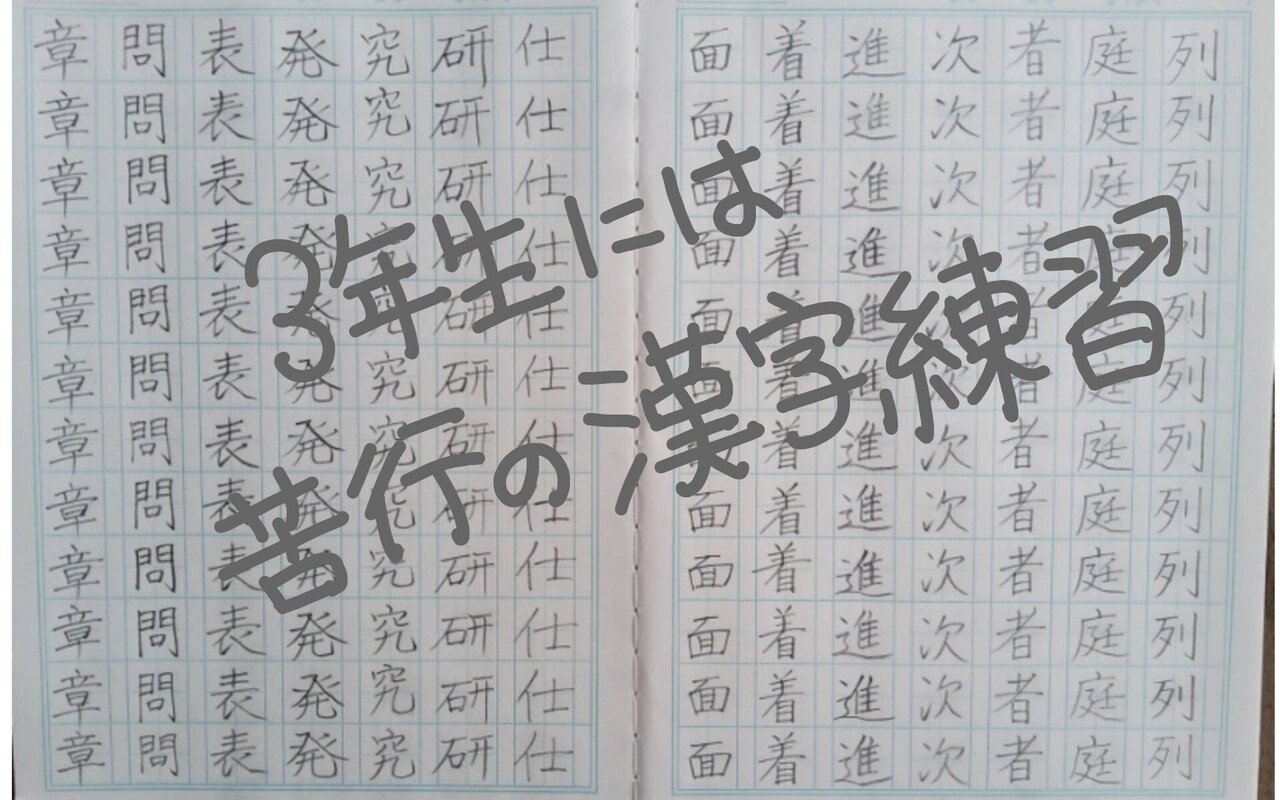 3年生には
苦行の漢字練習
列列列列列列列列列列列列
庭庭庭庭庭庭庭庭庭庭庭庭
者者者者者者者者者者者者
次次次次次次次次次次次次
進進進進進進進進進進進進
着着着着着着着着着着着着
面面面面面面面面面面面面
仕仕仕仕仕仕仕仕仕仕仕仕
研研研研研研研研研研研研
究究究究究究究究究究究究
発発発発発発発発発発発発
表表表表表表表表表表表表
問問問問問問問問問問問問
章章章章章章章章章章章章